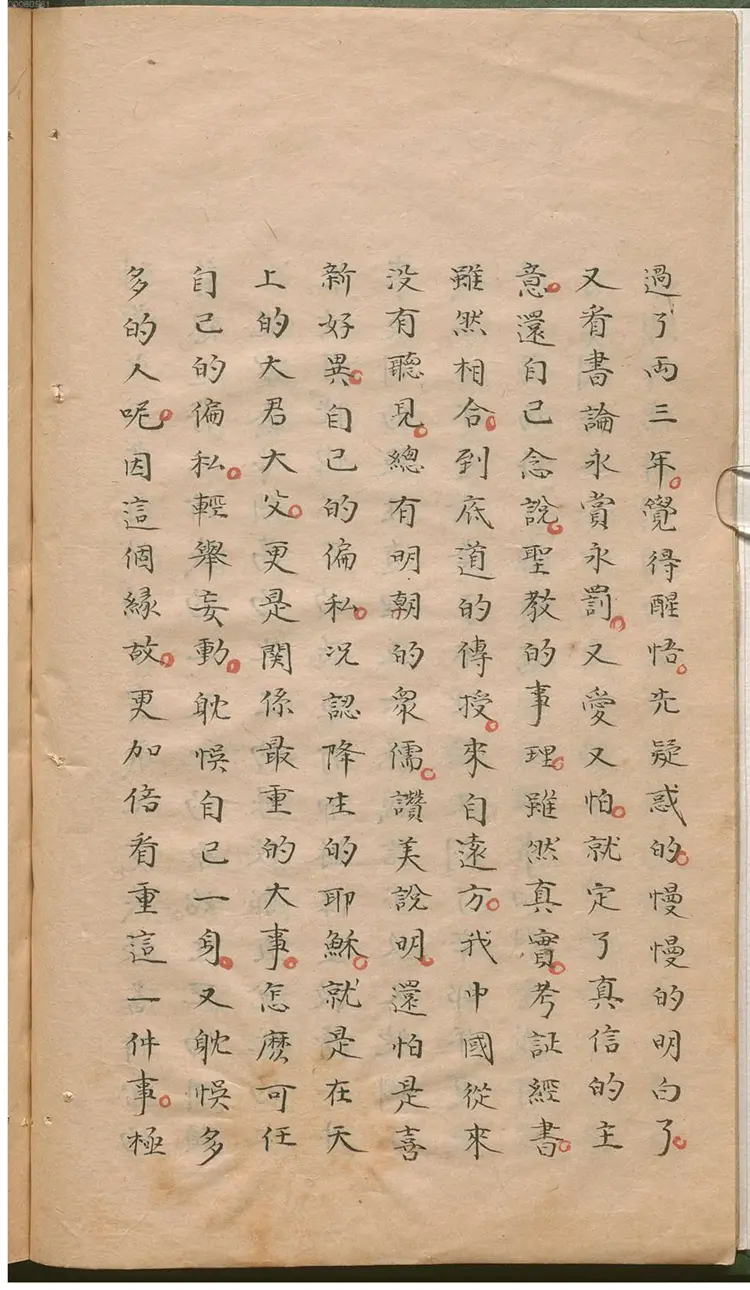 過了两三年。覺得醒悟。先疑惑的。慢慢的明白了。
又看書論永賞永罰。又愛又怕。就定了真信的主
意。還自己念說。聖教的事理。雖然真實。考証經書。
雖然相合。到底道的傳授。來自遠方。我中國從來
没有聽見。總有明朝的衆儒。讚美說明。還怕是喜
新好異。自己的偏私。况認降生的耶穌。就是在天
上的大君大父。更是関係最重的大事。怎麽可任
自己的偏私。輕舉妄動。耽悞自己一身。又耽悞多
多的人呢。因這個緣故。更加倍看重這一件事。極